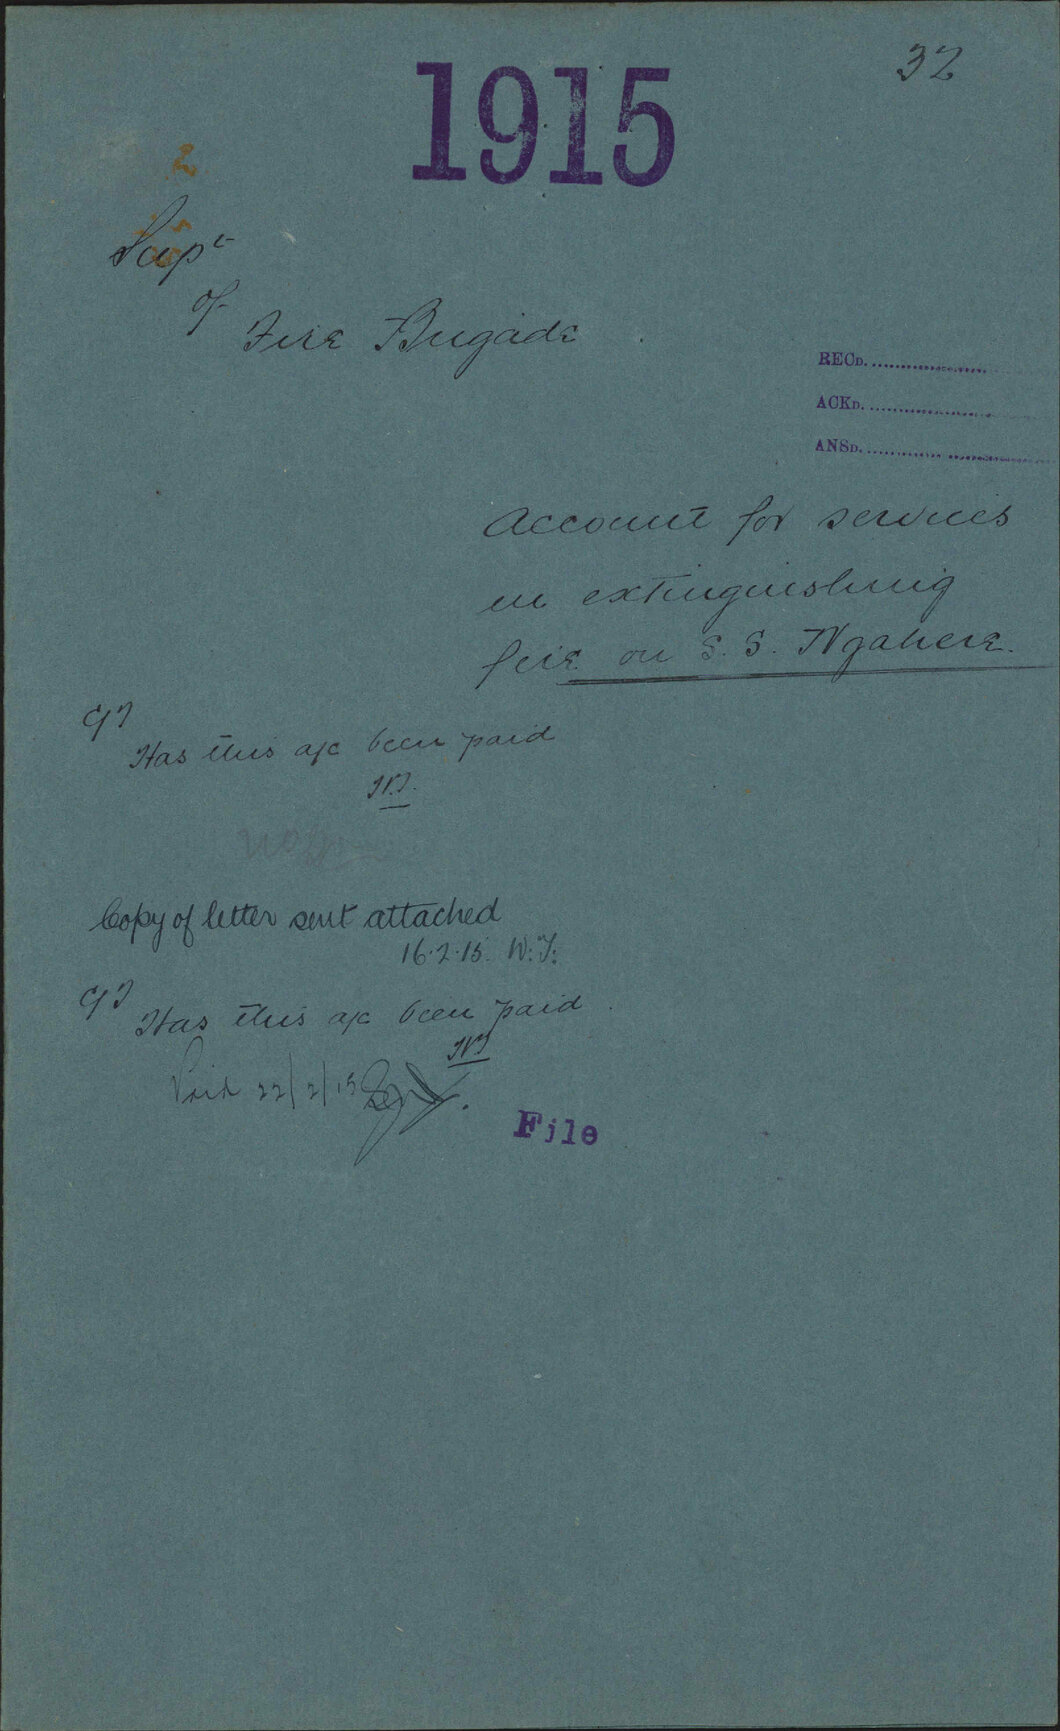 32
1915
2
Supt
of
Fire Brigade
RECD.
ACKD.
ANSD.
Account for services
in extinguishing
fire on S.S. Ngahere.
Has this a/c been paid
Copy of letter sent attached
16.2.15. W.F.
Has this a/c been paid
Paid 22/2/15
File